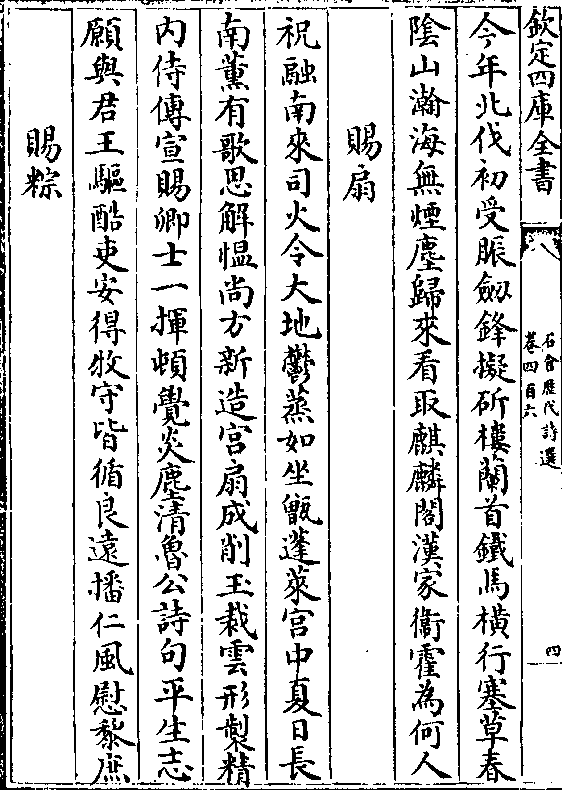 欽定四庫全書
石倉歷代詩選
卷四百六
四
今年北伐初受脤劔鋒擬斫樓蘭首鐵馬横行塞草春
隂山瀚海無煙塵歸來看取麒麟閣漢家衞霍為何人
賜扇
祝融南來司火令大地鬱蒸如坐甑蓬萊宫中夏日長
南薫有歌思解愠尚方新造宫扇成削玉裁雲形製精
内侍傳宣賜卿士一揮頓覺炎塵清魯公詩句平生志
願與君王驅酷吏安得牧守皆循良遠播仁風慰黎庶
賜粽